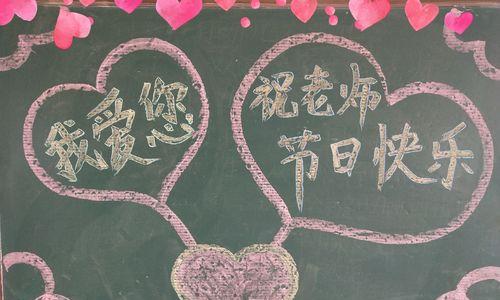 我爱您
祝老师
节日快乐